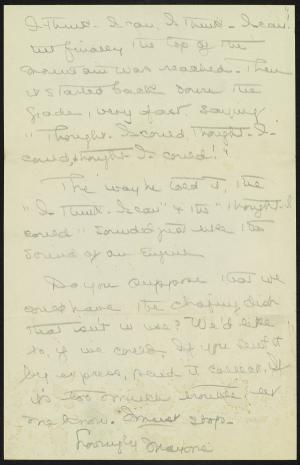 I think - I can. I think - I can!
until finally the top of the
mountain was reached. Then
it started back down the
grade, very fast saying
"Thought - I could thought - I -
could, thought - I - could!"
The way he told it, the
"I - think - I can" & the "thought - I
could" sounded just like the
sound of an engine.
Do you suppose that we
could have the chafing dish
that isn't in use? We'd like
to, if we could. If you send it
by express, send it collect, if
it's too much trouble let
me know. Must stop.
Lovingly